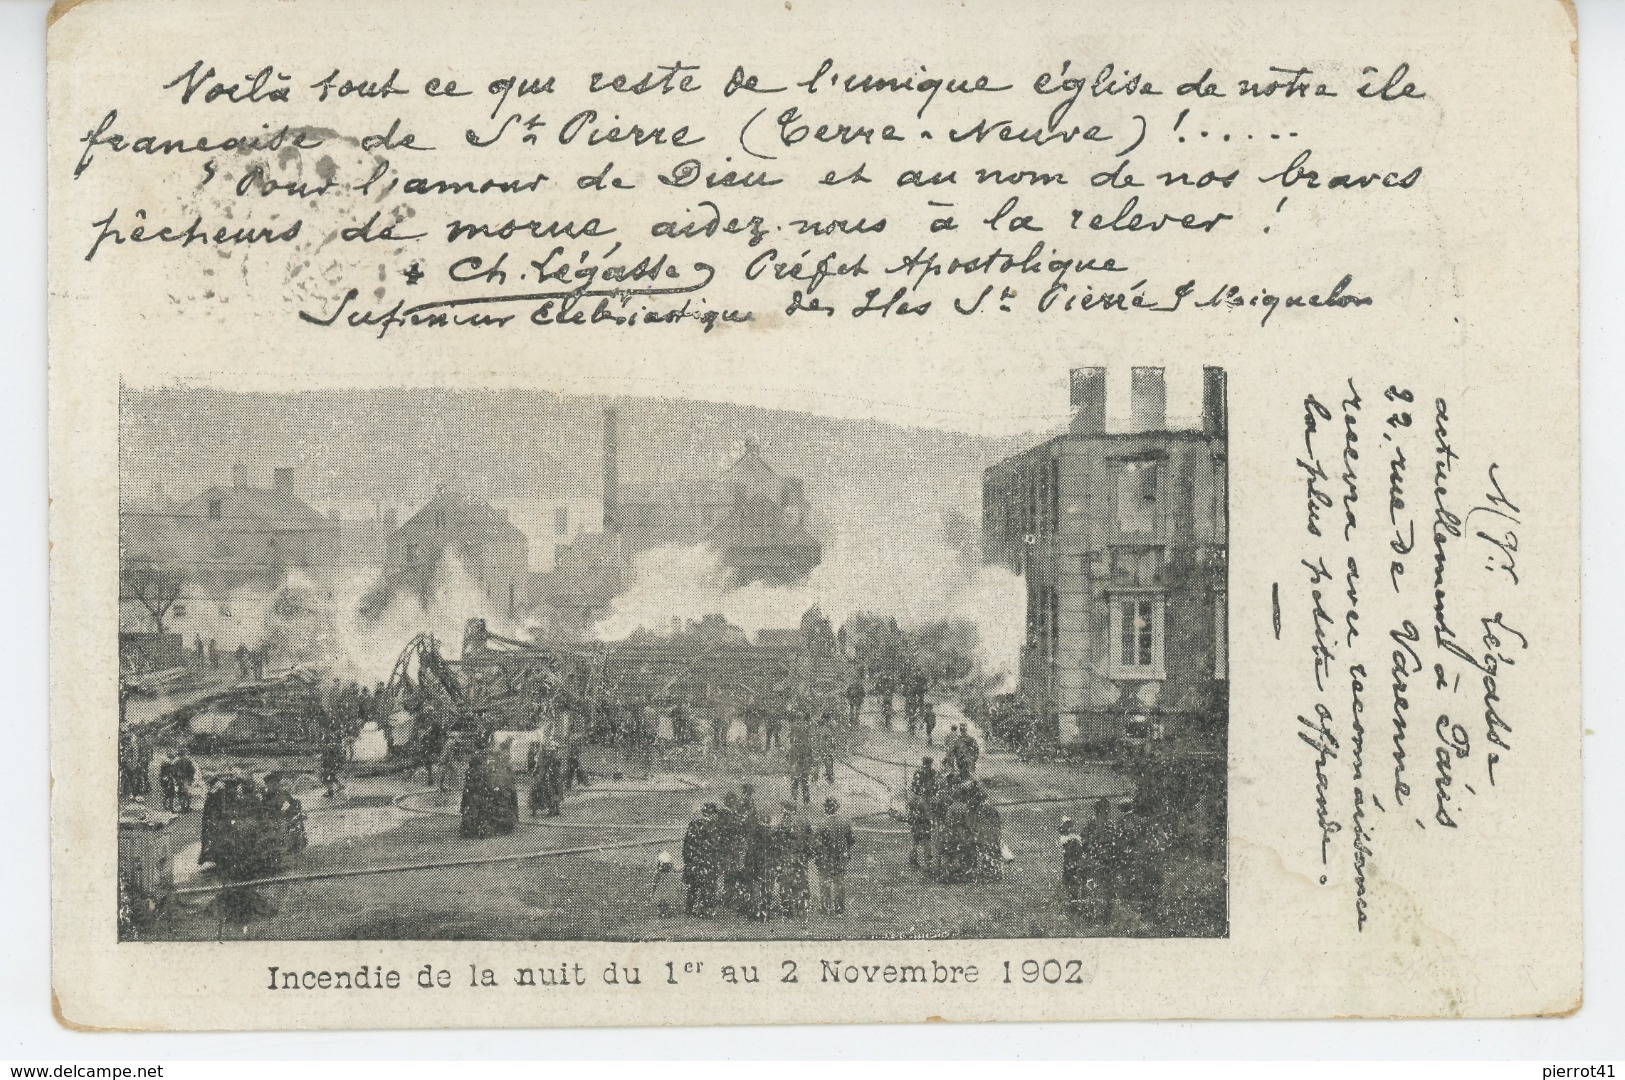 Voilà tout ce qui reste de l'unique église de notre île
française de St Pierre (Terre-Neuve) !......
Pour l'amour de Dieu et au nom de nos braves
pêcheurs de morue, aidez-nous à la relever !
+ Ch. Légasse, Préfet Apostolique
Supérieur Ecclésiastique des Iles St Pierre & Miquelon
Mgr. Légasse
actuellement à Paris
22, rue de Varenne
recevra avec reconnaissance
la plus petite offrande.
Incendie de la nuit du 1er au 2 Novembre 1902
www.delcampe.net
pierrot41